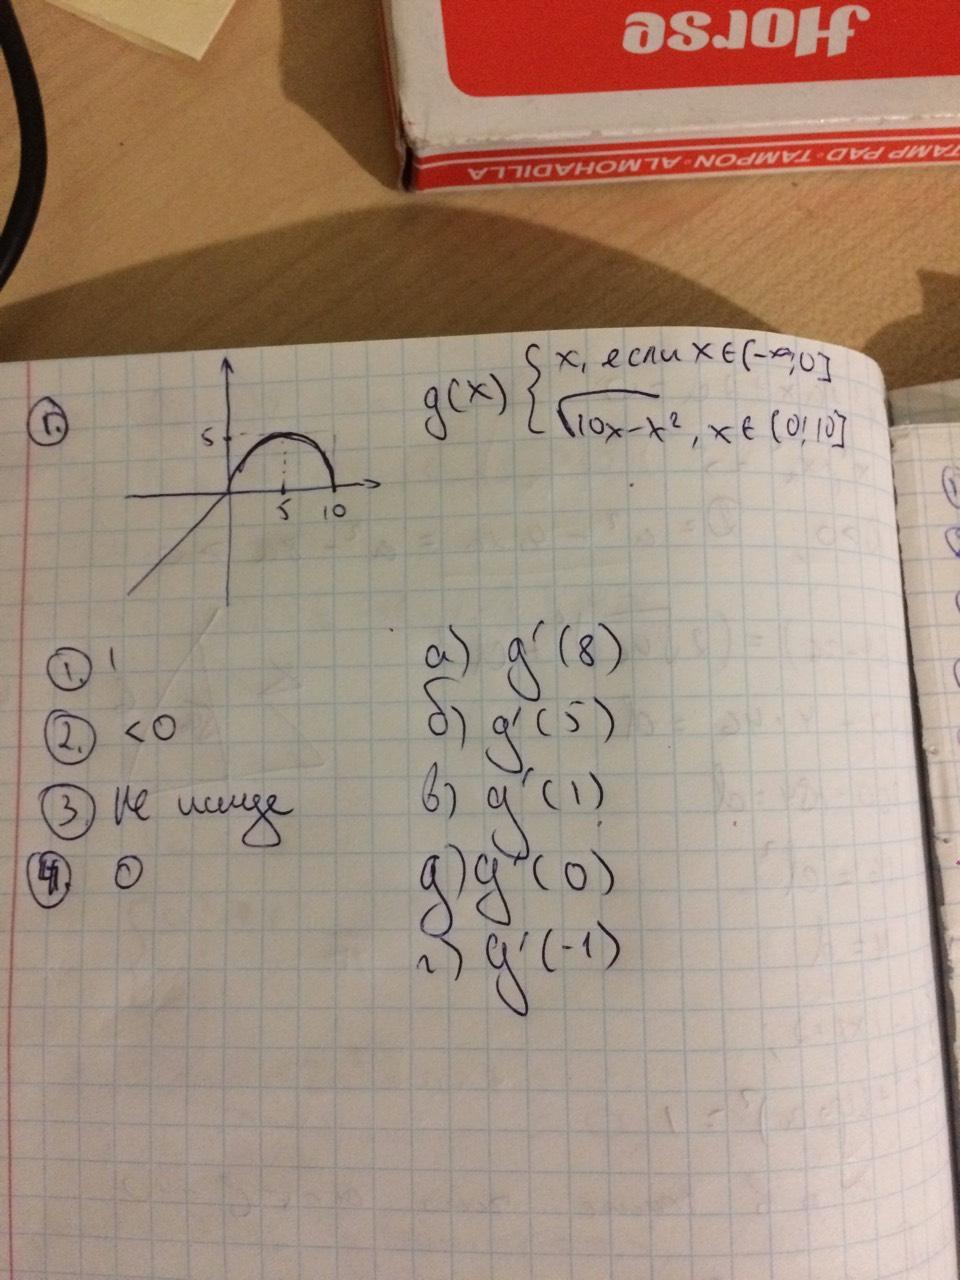 Horse
STAMP PAD · TAMPON · ALMOHADILLA
g(x) { x, если x ∈ (-∞;0]
√10x-x², x ∈ (0;10]
5
5 10
① 1
② <0
③ не
④ 0
а) g'(8)
б) g'(5)
в) g'(1)
д) g'(0)
г) g'(-1)